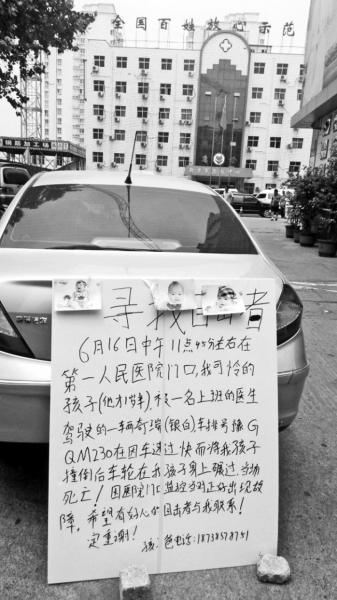 全国百姓放心示范
钢筋加工场
寻找目击者
6月16日中午11点45分左右在
第一人民医院门口,我可怜的
孩子(他才1岁半),被一名上班的医生
驾驶的一辆奇瑞(银白),车牌号豫G
QM230在因车速过快而将我孩子
撞倒后车轮在我孩子身上辗过当场
死亡!因医院门口监控当时正好出现故
障,希望有好心的目击者与我联系!
定重谢!
电话:18738578751